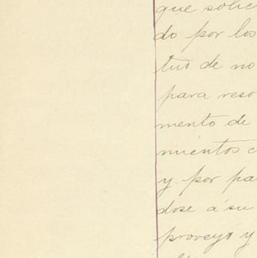 que solic
do por los
tud de no
para reso
mento de
mientos c
y por pa
dose á su
proveyo y